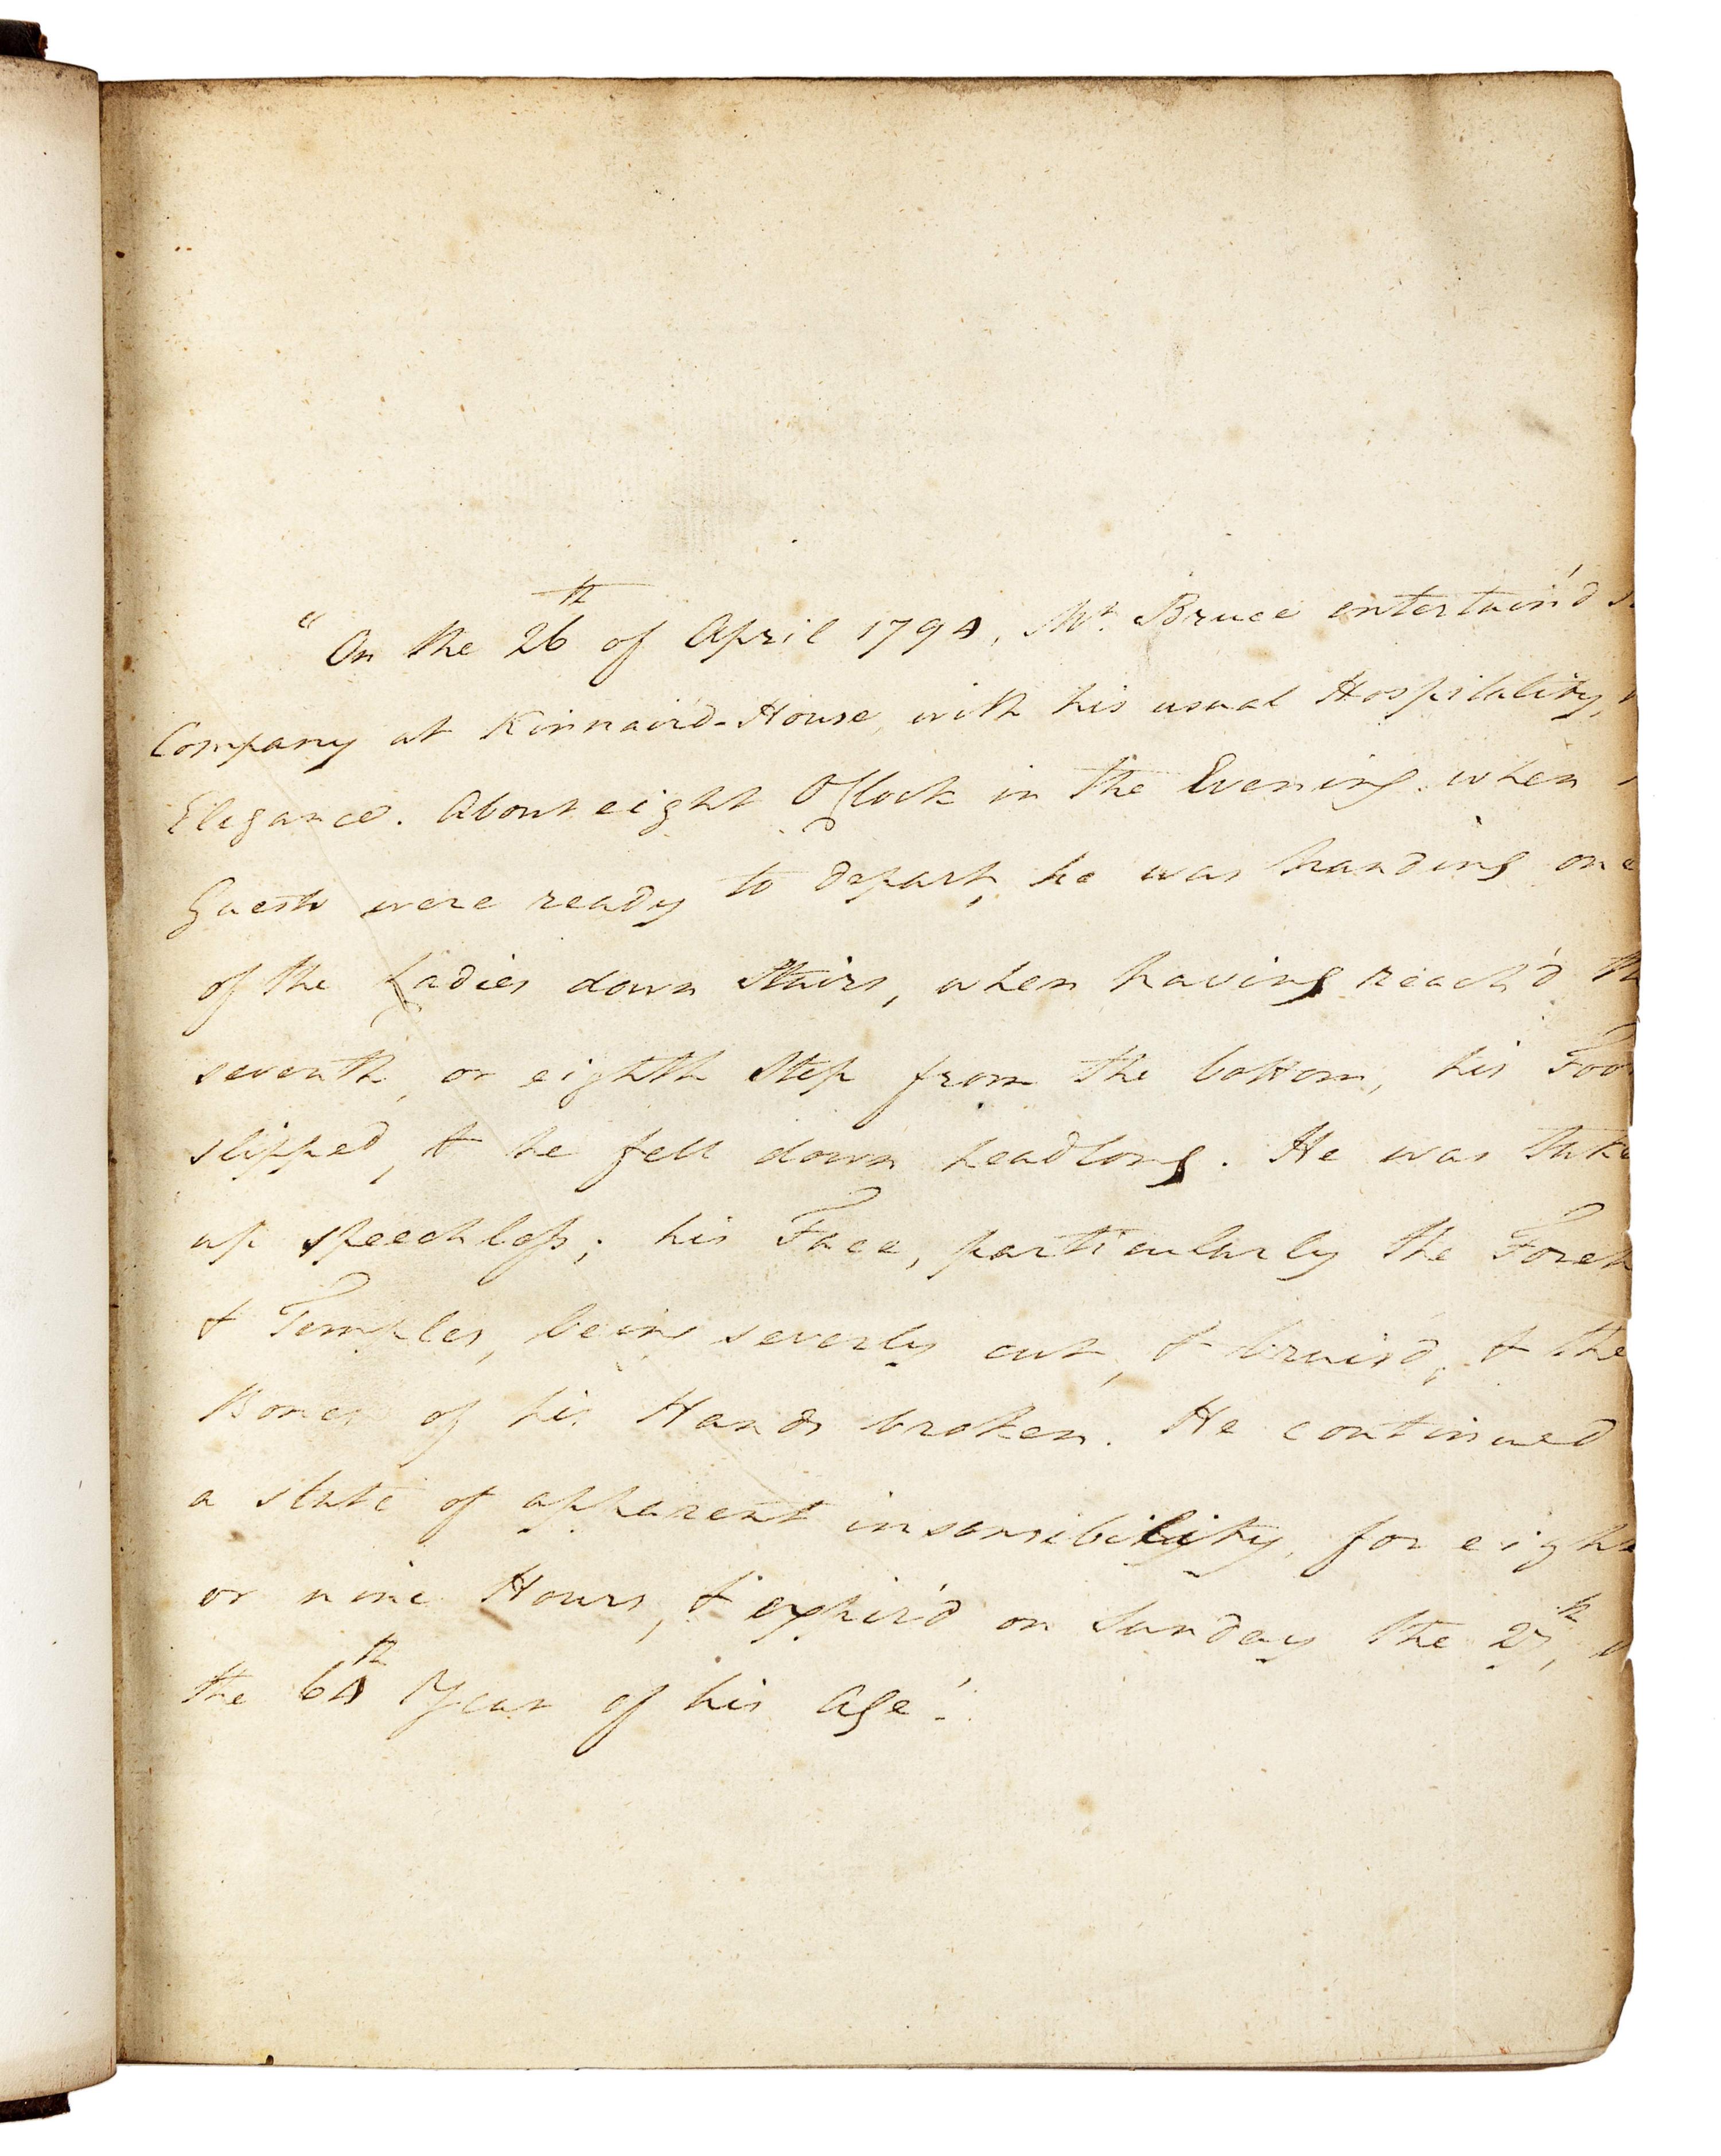 "On the 26th of April 1794, Mr. Bruce entertain'd
Company at Kinnaird-House, with his usual Hospitality,
Elegance. About eight O'Clock in the Evening, when
Guests were ready to depart, he was handing one
of the Ladies down Stairs, when having reach'd th
seventh, or eighth Step from the bottom, his Foo
slipped, & he fell down headlong. He was take
up speechless; his Face, particularly the Foreh
& Temples, being severly cut, & bruis'd, & the
Bones of his Hands broken. He continued
a state of apparent insensibility, for eight
or nine Hours, & expir'd on Sunday the 27th,
the 64th Year of his Age".